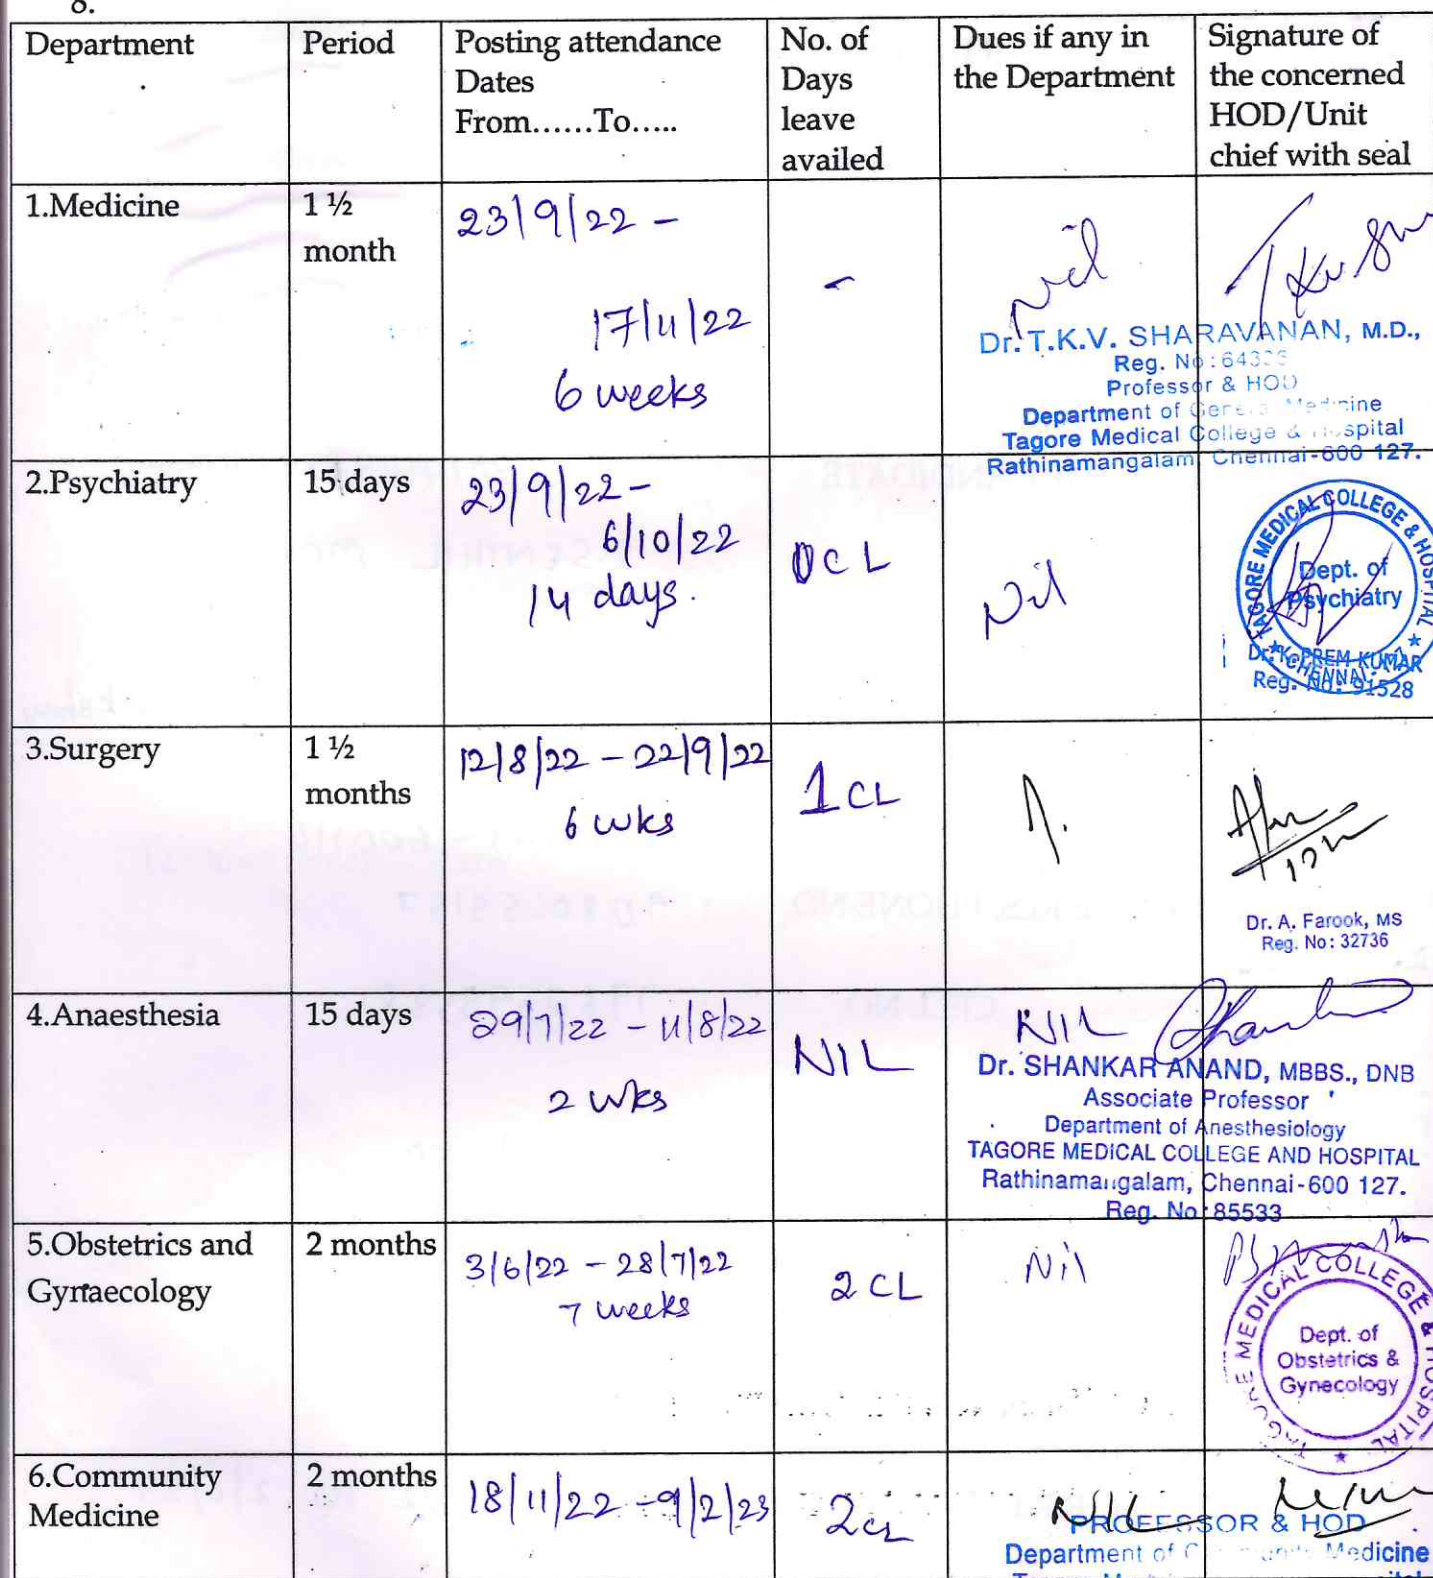 8.
Department
Period
Posting attendance
Dates
From......To.....
No. of
Days
leave
availed
Dues if any in
the Department
Signature of
the concerned
HOD/Unit
chief with seal
1.Medicine
1 ½
month
23/9/22 -
17/11/22
6 weeks
-
Nil
Dr. T.K.V. SHARAVANAN, M.D.,
Reg. No:
Professor & HOD
Department of General Medicine
Tagore Medical College & Hospital
Rathinamangalam, Chennai-600 127.
2.Psychiatry
15 days
23/9/22 -
6/10/22
14 days.
0 CL
Nil
TAGORE MEDICAL COLLEGE & HOSPITAL
Dept. of
Psychiatry
★ CHENNAI. ★
Dr. K. PREM KUMAR
Reg. No: 91528
3.Surgery
1 ½
months
12/8/22 - 22/9/22
6 wks
1 CL
Dr. A. Farook, MS
Reg. No: 32736
4.Anaesthesia
15 days
29/7/22 - 11/8/22
2 wks
NIL
NIL
Dr. SHANKAR ANAND, MBBS., DNB
Associate Professor
Department of Anesthesiology
TAGORE MEDICAL COLLEGE AND HOSPITAL
Rathinamangalam, Chennai-600 127.
Reg. No: 85533
5.Obstetrics and
Gynaecology
2 months
3/6/22 - 28/7/22
7 weeks
2 CL
Nil
TAGORE MEDICAL COLLEGE & HOSPITAL
Dept. of
Obstetrics &
Gynecology
★
6.Community
Medicine
2 months
18/11/22 - 9/2/23
2 CL
NIL
PROFESSOR & HOD
Department of Community Medicine